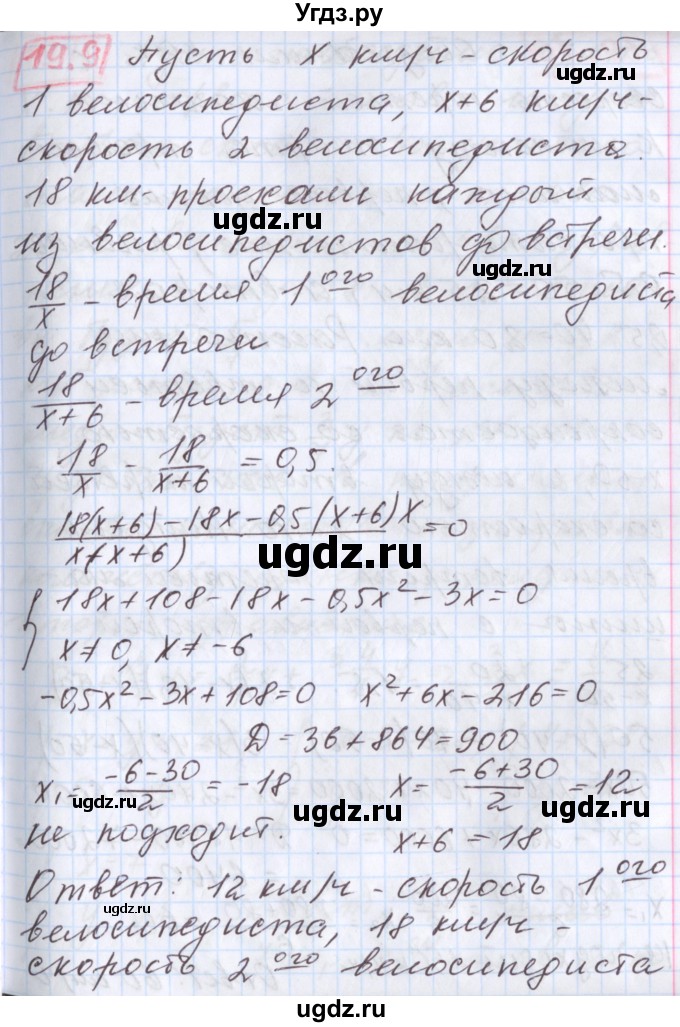 Угдз.ру
19.9 Пусть x км/ч - скорость
1 велосипедиста, x+6 км/ч -
скорость 2 велосипедиста.
18 км - проехали каждый
ugdz.ru ugdz.ru
из велосипедистов до встречи.
18/x - время 1 ого велосипедиста
ugdz.ru
до встречи
18/(x+6) - время 2 ого
18/x - 18/(x+6) = 0,5.
ugdz.ru
(18(x+6) - 18x - 0,5(x+6)x)/(x(x+6)) = 0
ugdz.ru
{ 18x + 108 - 18x - 0,5x² - 3x = 0
x ≠ 0, x ≠ -6
-0,5x² - 3x + 108 = 0 x² + 6x - 216 = 0
ugdz.ru
Д = 36 + 864 = 900
x₁ = (-6-30)/2 = -18 x = (-6+30)/2 = 12
ugdz.ru ugdz.ru
не подходит. x+6 = 18
Ответ: 12 км/ч - скорость 1 ого
ugdz.ru
велосипедиста, 18 км/ч -
ugdz.ru
скорость 2 ого велосипедиста
ugdz.ru